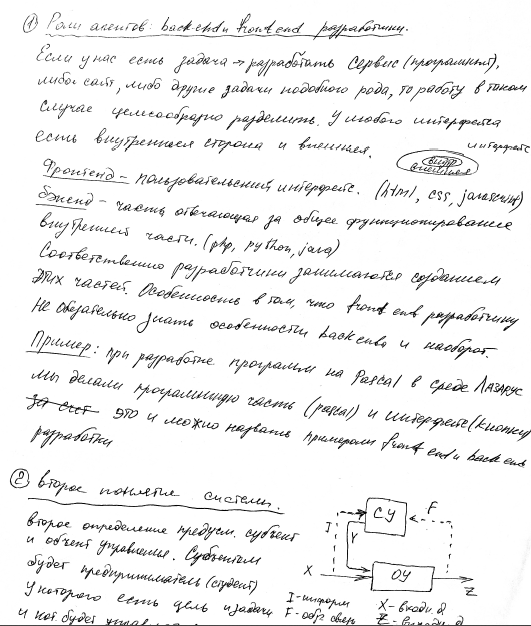 ① Роли агентов: backend и frontend разработчики.
Если у нас есть задача → разработать сервис (программный),
либо сайт, либо другие задачи подобного рода, то работу в таком
случае целесообразно разделить. У любого интерфейса
есть внутренняя сторона и внешняя.
интерфейс
внутр
внешняя
Фронтенд – пользовательский интерфейс. (html, css, javascript)
Бэкенд – часть отвечающая за общее функционирование
внутренней части. (php, python, java)
Соответственно разработчики занимаются созданием
этих частей. Особенность в том, что frontend разработчику
не обязательно знать особенности backend и наоборот.
Пример: при разработке программ на Pascal в среде ЛАЗАРУС
мы делали программную часть (pascal) и интерфейс (кнопки)
за счет это и можно назвать примерами frontend и backend
разработки
② Второе понятие системы.
второе определение предусм. субъект
и объект управления. Субъектом
будет предприниматель (студент)
у которого есть цель и задачи
и кот. будет
СУ
I
F
Y
X
ОУ
Z
I - информ
F - обр. связь
X - входн. д
Z - выходн. д